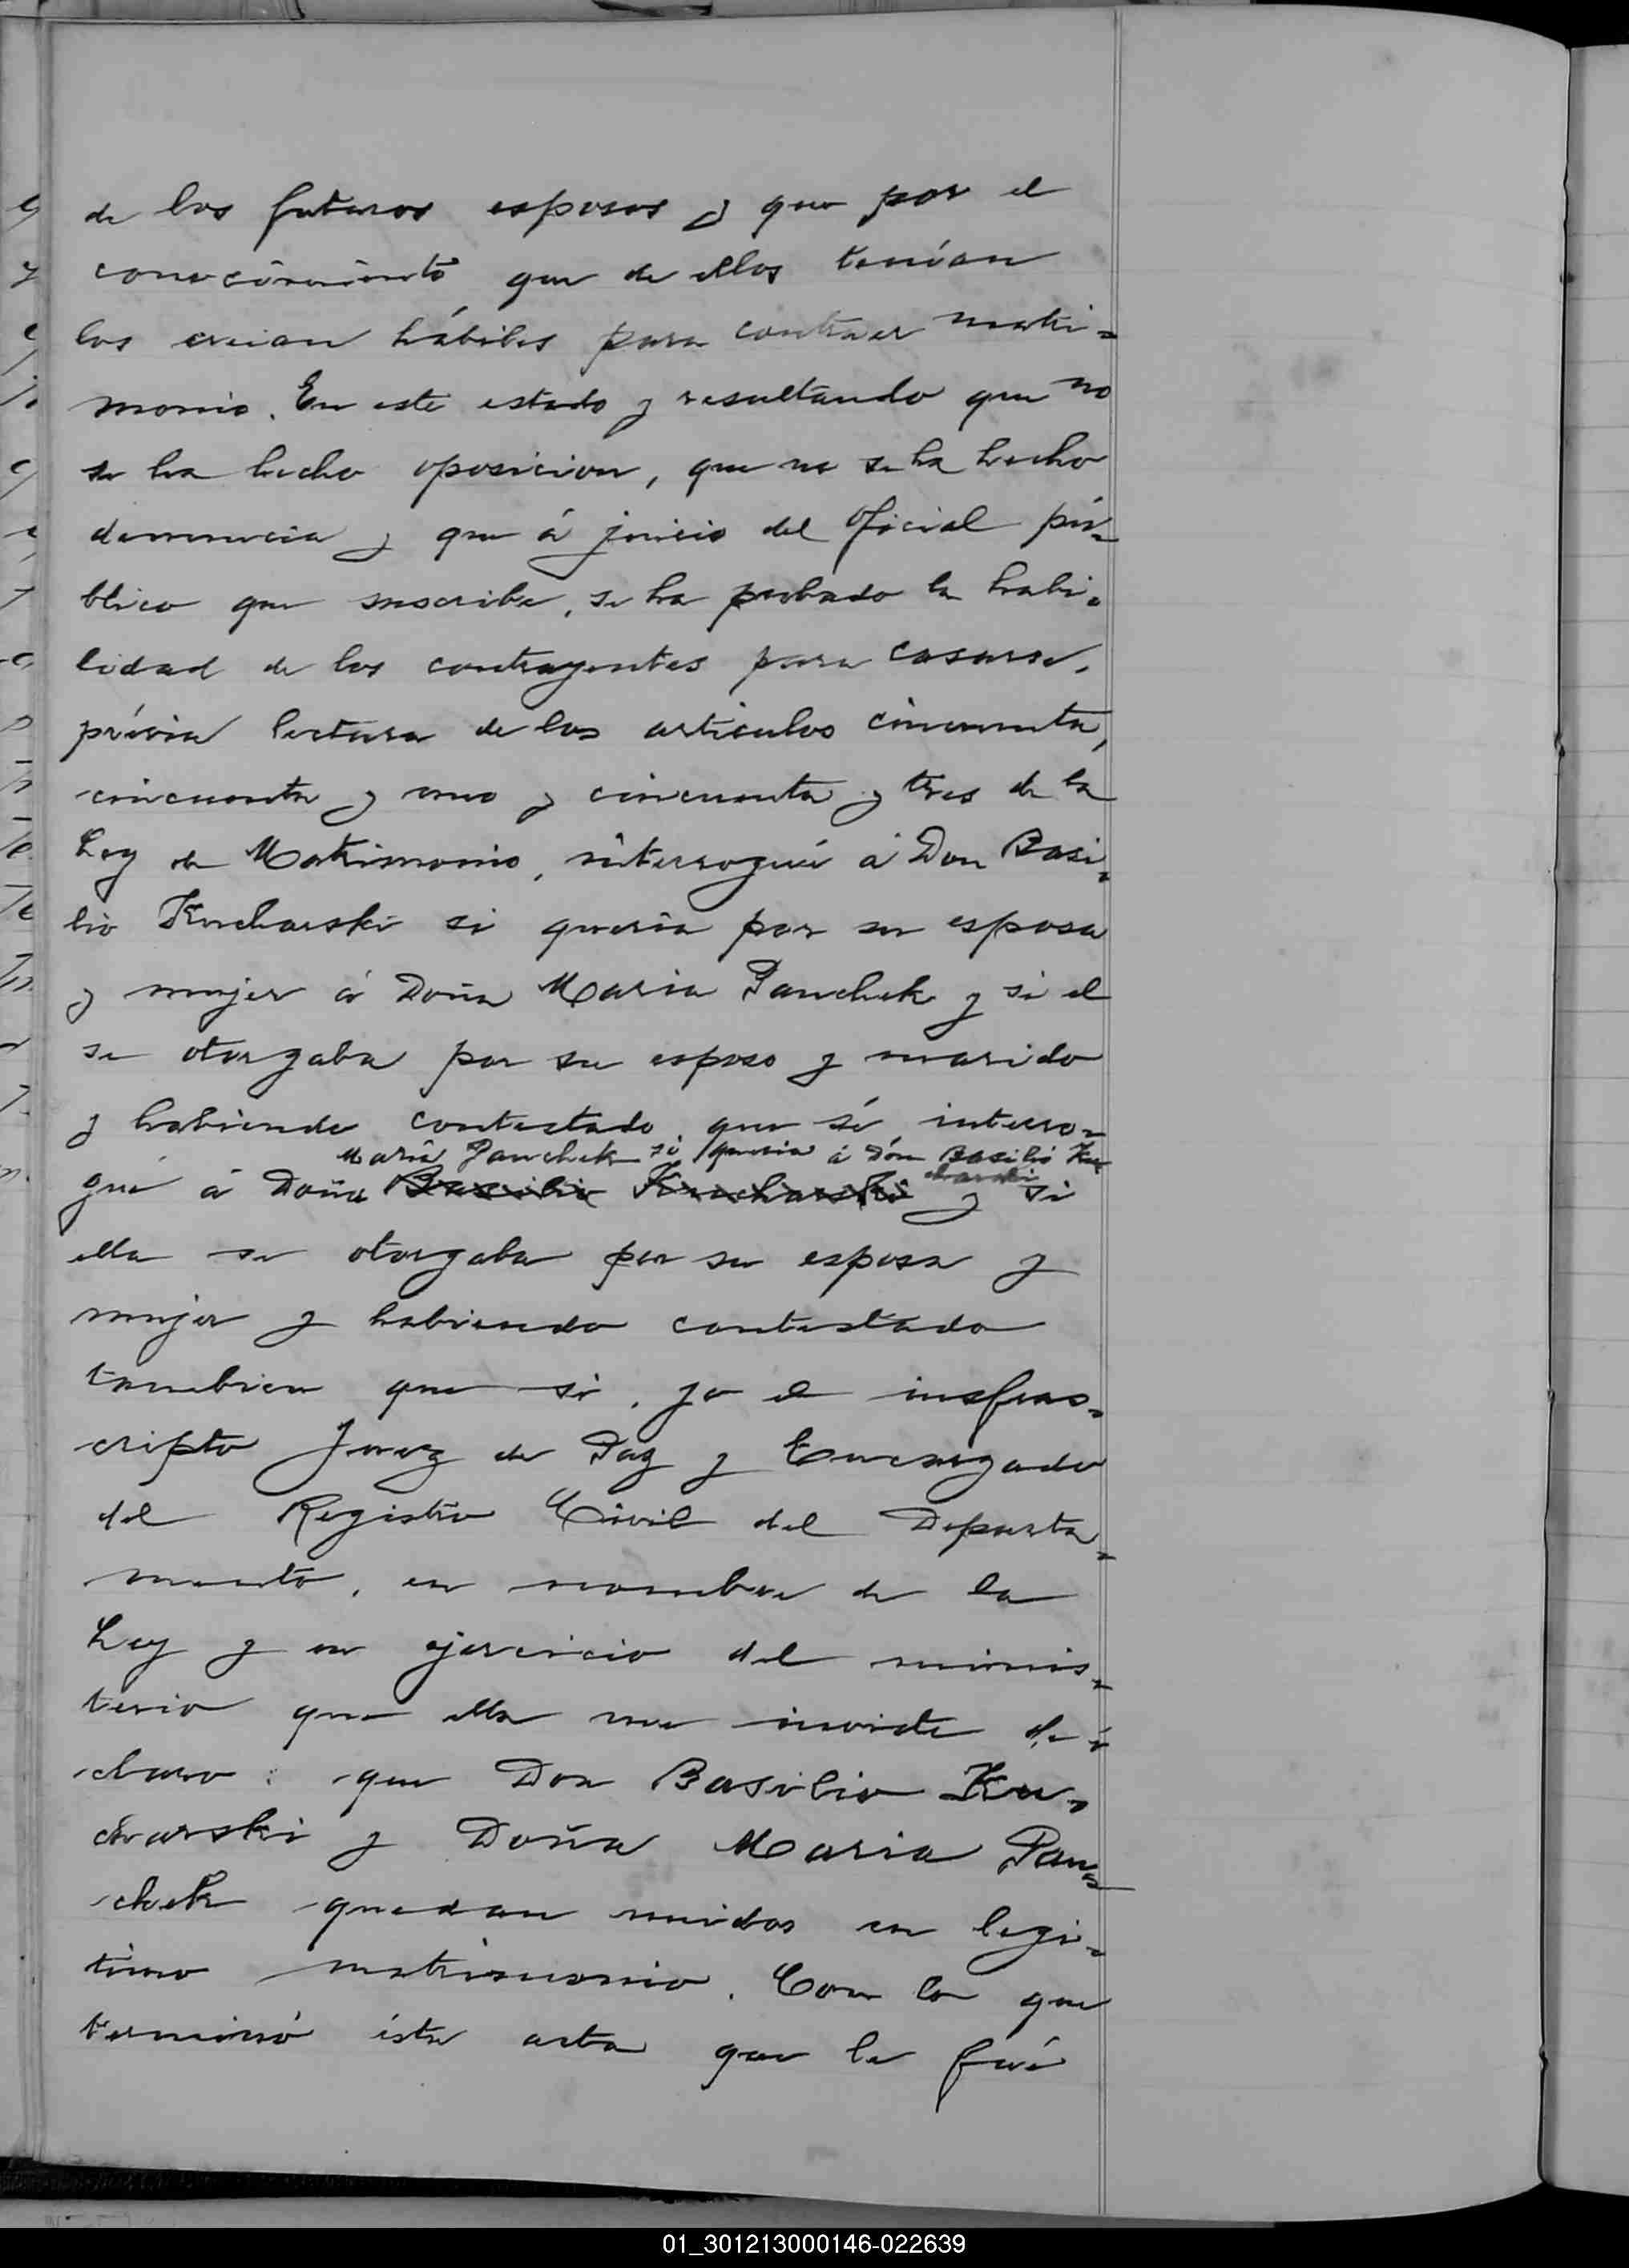 de los futuros esposos y que por el
conocimiento que de ellos tenían
los creian hábiles para contraer matri=
monio. En este estado y resultando que no
se ha hecho oposicion, que no se ha hecho
denuncia y que á juicio del Oficial pú=
blico que suscribe, se ha probado la habi=
lidad de los contrayentes para casarse,
prévia lectura de los articulos cincuenta,
cincuenta y uno y cincuenta y tres de la
Ley de Matrimonio, interrogué á Don Basi=
lio Kucharski si queria por su esposa
y mujer á Doña Maria Panchek y si el
se otorgaba por su esposo y marido
y habiendo contestado que sí interro=
Maria Panchek si queria á Dón Basilio Ku
charski
gué á Doña Basilio Kucharski y si
ella se otorgaba por su esposa y
mujer y habiendo contestado
tambien que si, yo el infras=
cripto Juez de Paz y Encargado
del Registro Civil del Departa=
mento, en nombre de la
Ley y en ejercicio del minis=
terio que ella me inviste de=
claro: que Don Basilio Ku=
charski y Doña Maria Pan=
chek quedan unidos en legi=
timo matrimonio. Con lo que
terminó ésta acta que le fué
01_301213000146-022639